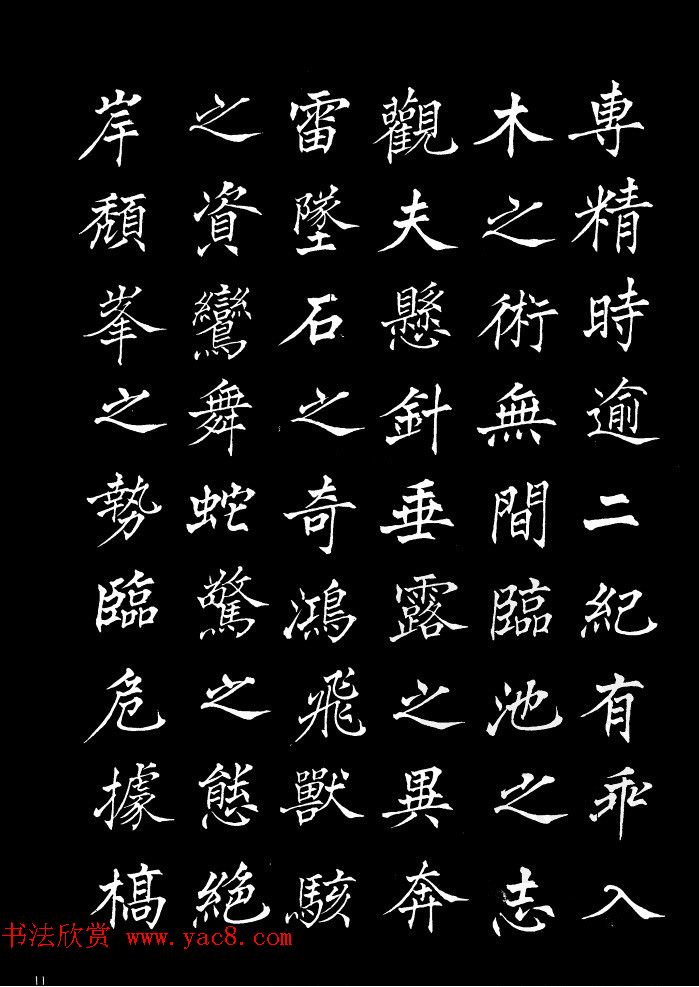 專精時逾二紀有乖入
木之術無間臨池之志
觀夫懸針垂露之異奔
雷墜石之奇鴻飛獸駭
之資鸞舞蛇驚之態絕
岸頹峯之勢臨危據槁
书法欣赏 www.yac8.com
11